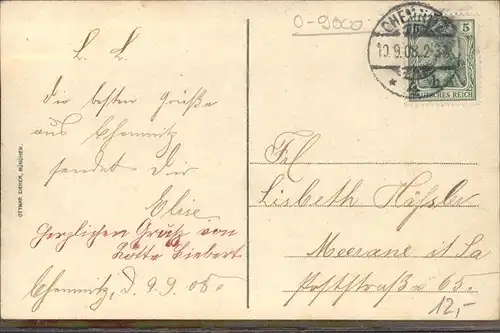 O-9000
CHEMNITZ
10.9.08.2-3
5
DEUTSCHES REICH
L. L.
die besten Grüße
aus Chemnitz
sendet dir
Elise.
Herzlichen Gruß von
Liebert
Chemnitz, d. 9.9.08.
OTTMAR ZIEHER, MÜNCHEN.
Frl.
Lisbeth Häßler
Meerane i. Sa
Poststraße 65.
12,-